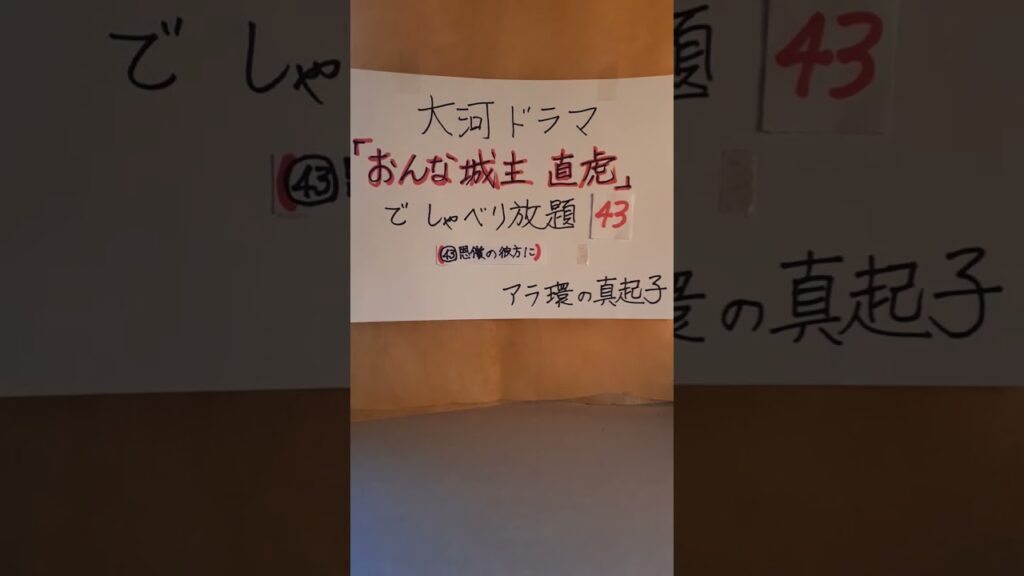 大河ドラマ
「おんな城主 直虎」
で しゃべり放題 43
(㊸恩償の彼方に)
アラ環の真起子